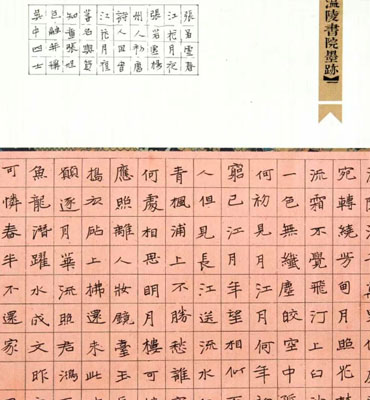 陵書院墨跡】
張若虛春
江花月夜
張若虛楊
州人初唐
詩人
江花月
名與賀
知章張旭
包融并稱
吳中四士
宛轉繞芳甸月照花
流霜不覺飛汀上白
一色無纖塵皎空中孤
何初見月江月何年
窮已江月年望相似
人但見長江送流水
青楓浦上不勝愁誰
何處相思明月樓可
應照離人妝鏡臺玉
搗衣砧上拂還來此
願逐月華流照君鴻
魚龍潛躍水成文昨
可憐春半不還家